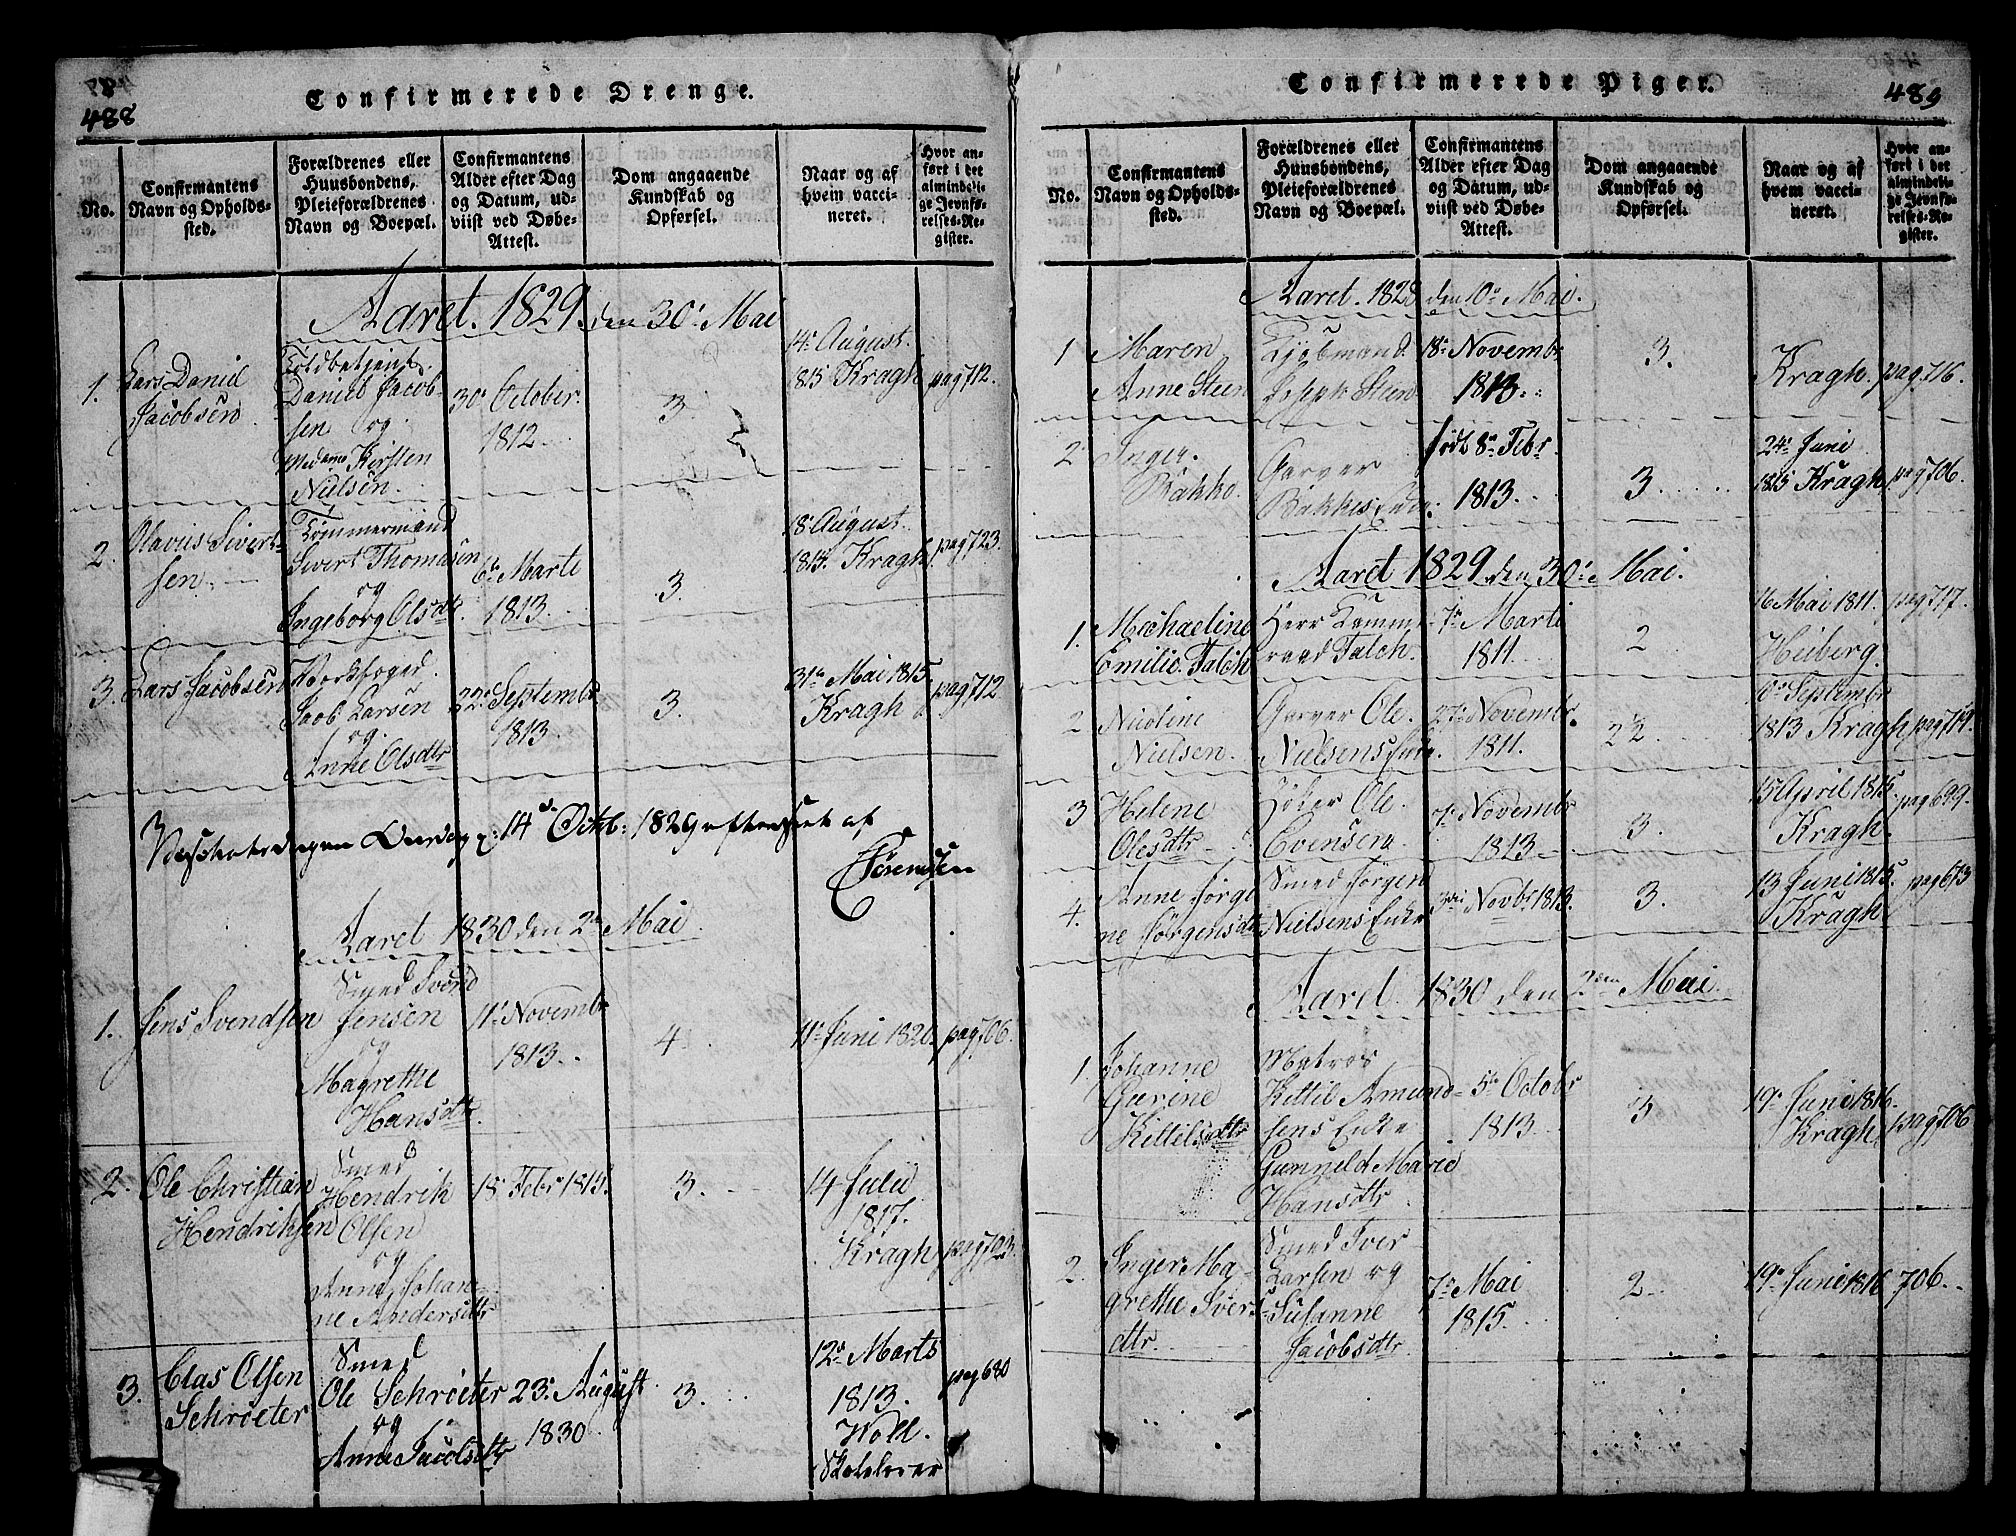 488
Confirmerede Drenge.
No.
Confirmantens
Navn og Opholds-
sted.
Forældrenes eller
Huusbondens,
Pleieforældrenes
Navn og Boepæl.
Confirmantens
Alder efter Dag
og Datum, ud-
viist ved Døbe-
Attest.
Dom angaaende
Kundskab og
Opførsel.
Naar og af
hvem vacci-
neret.
Hvor an-
ført i det
almindeli-
ge Jevnfø-
relses-Re-
gister.
Aaret. 1829. den 30. Mai
1.
Lars Daniel
Jacobsen
Toldbetjent
Daniel Jacob-
sen og
Kirsten
Nielsen.
30. October.
1812
3.
14. August.
1815 Kragh
pag 712.
2.
Olavus Sivert-
sen
Tømmermand
Sivert Thomasen
og
Ingeborg Olsdtr.
6. Marti
1813.
3.
18. August.
1814. Kragh
pag 723.
3.
Lars Jacobsen
Jacob Larsen
og
Anne Olsdtr
22. Septembr
1813.
3.
31. Mai 1815.
Kragh
pag 712
14d Octb: 1829 af
Sørensen
Aaret 1830 den 2den Mai
1.
Jens Svendsen
Smed Svend
Jensen
og
Magrethe
Hansdtr.
11. Novembr
1813.
4.
11. Juni 1820.
pag 706.
2.
Ole Christian
Hendriksen
Smed
Hendrik
Olsen
og
Anne Johan-
ne Andersdtr
18 Febr 1815.
3.
14 Julii
1817.
Kragh
pag 703.
3.
Clas Olsen
Schrøeter
Smed
Ole Schrøeter
og
Anne Jacobsdtr
23. August
1830
3.
12. Marts
1813.
Woll.
pag 680
Confirmerede Piger.
489
No.
Confirmantens
Navn og Opholds-
sted.
Forældrenes eller
Huusbondens,
Pleieforældrenes
Navn og Boepæl.
Confirmantens
Alder efter Dag
og Datum, ud-
viist ved Døbe-
Attest.
Dom angaaende
Kundskab og
Opførsel.
Naar og af
hvem vacci-
neret.
Hvor an-
ført i det
almindeli-
ge Jevnfø-
relses-Re-
gister.
Aaret. 1828 den 10. Mai.
1
Maren
Anne Steen
Kjøbmand
Joseph Steen
18. Novembr
1813.
3.
Kragh.
pag. 716.
2
Inger
Bakke.
Garver
Bakkes Enke.
født 8. Febr
1813.
3.
24. Juni
1815 Kragh.
pag 706.
Aaret 1829 den 30. Mai.
1.
Michaeline
Emilie Falch
Herr Kamme-
raad Falch.
7. Marti
1811.
2
16 Mai 1811.
Heiberg.
pag 717.
2
Nicoline
Nielsen.
Garver Ole
Nielsens Enke.
27. Novembr.
1811.
2 1/2
10. Septembr
1813 Kragh
pag 719.
3
Helene
Olesdtr
Ole
Evensen
7. Novembr
1813
3.
15 April 1815
Kragh.
pag 699.
4.
Anne Jørgi-
ne Jørgensdtr
Smed Jørgen
Nielsens Enke
3die Novbr 1813.
3.
13 Juni 1815.
Kragh.
pag 673
Aaret. 1830 den 2den Mai
1.
Johanne
Gurine
Kittilsdtr
Matros
Kittil Amund-
sens Enke
Gunneld Marie
Hansdtr.
5. Octobr
1813.
3
19. Juni 1816.
Kragh.
pag 706
2.
Inger Ma-
grethe Ivers-
dtr.
Smed Iver
Larsen og
Susanne
Jacobsdtr.
7. Mai
1815.
2
19. Juni 1816
706.